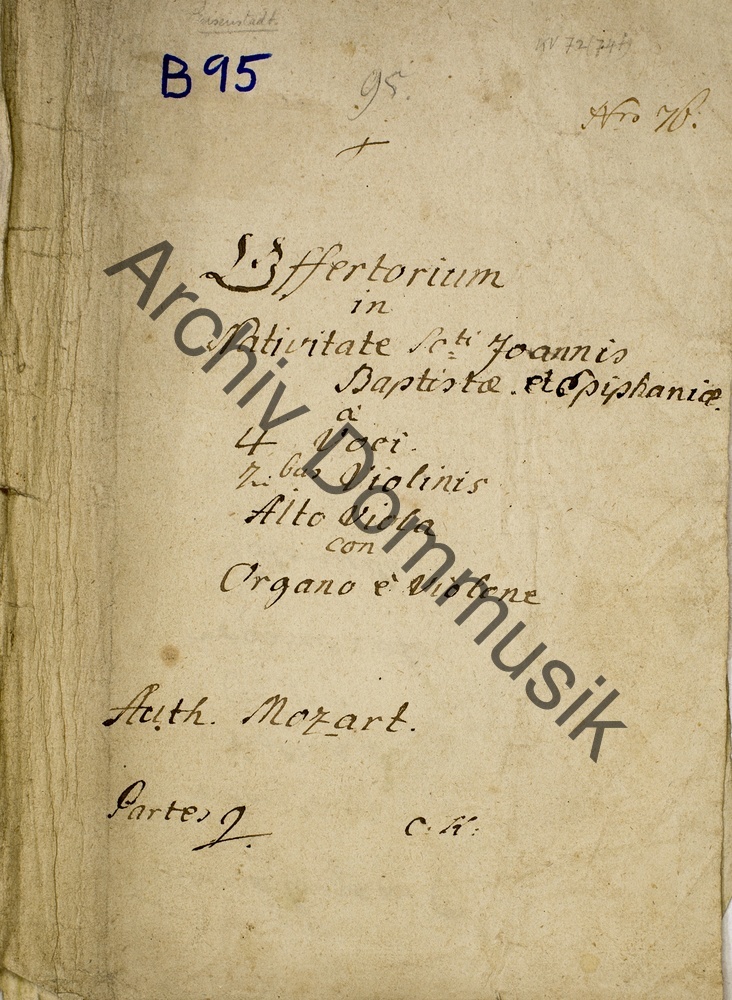 Eisenstadt.
KV 72 (74f)
B 95
95.
Nro 76.
Offertorium
in
Nativitate Scti Joannis
Baptistæ. et Epiphaniæ.
à
4 Voci.
2.bus Violinis
Alto Viola
con
Organo è Violone
Auth. Mozart.
Partes 9.
C. K:
Archiv Dommusik